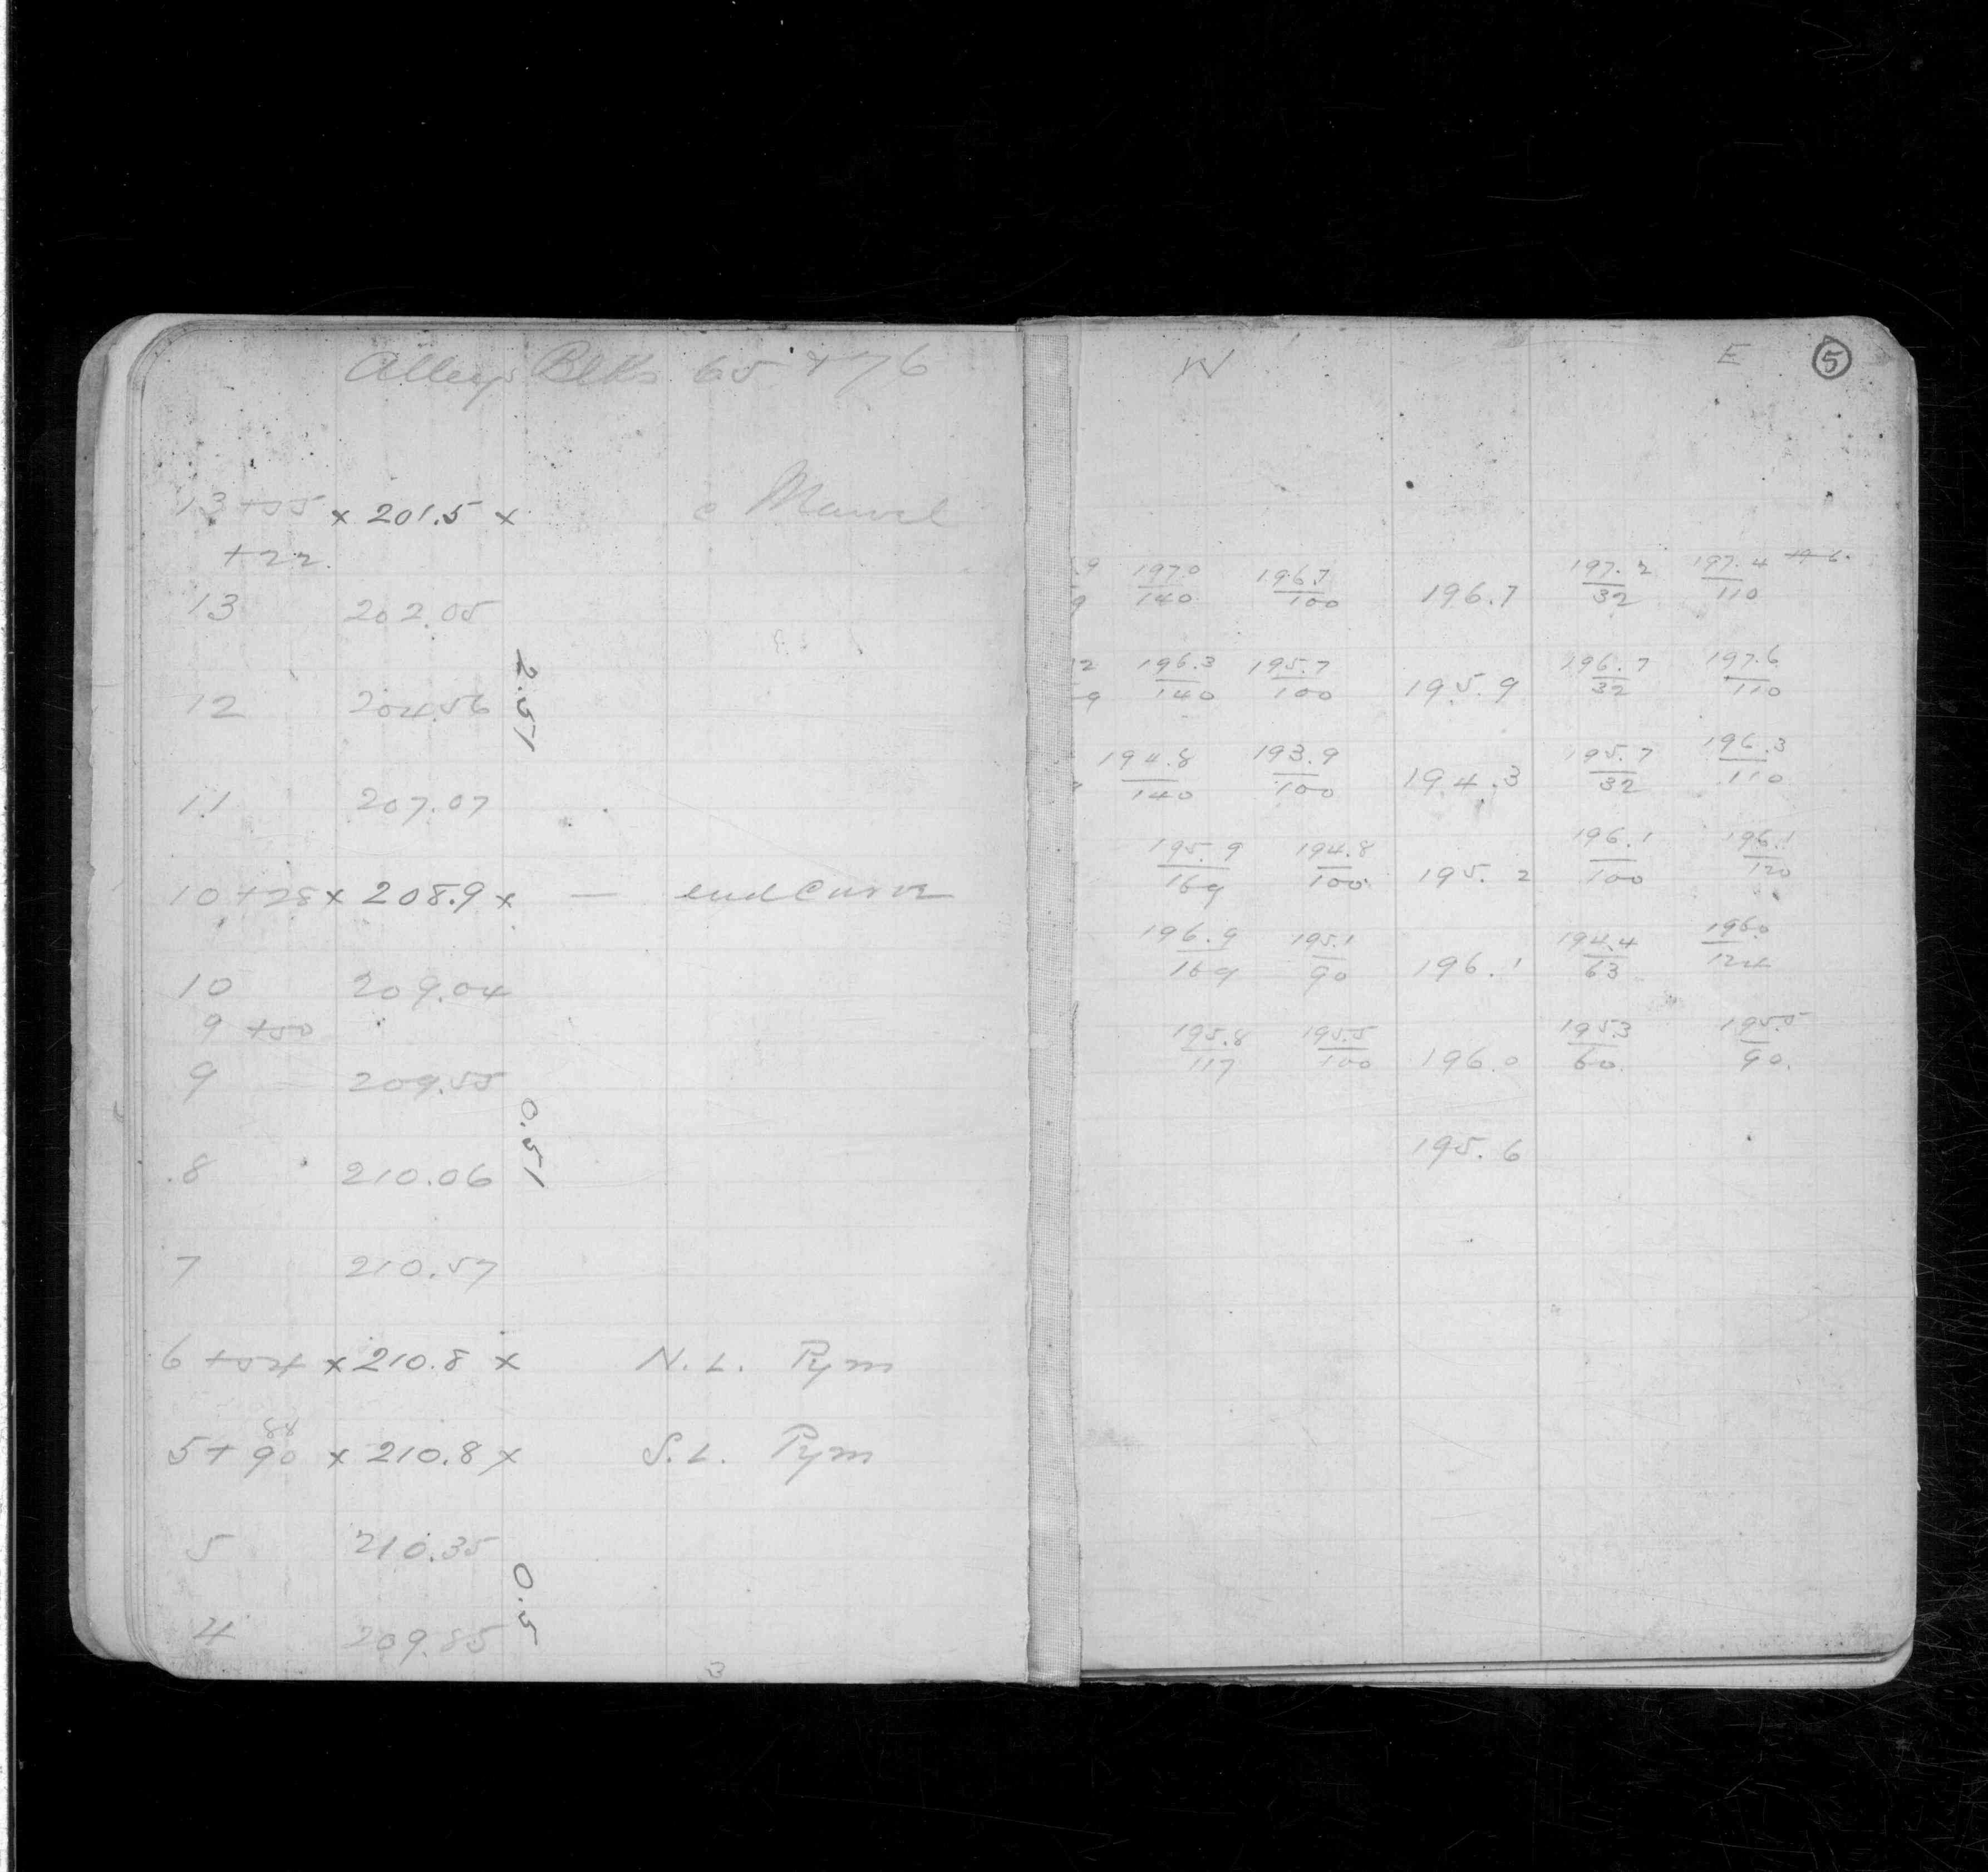 Alleys Blks 65 + 76
13+55 x 201.5 x c Marvel
+22.
13 202.05
2.51
12 204.56
11 207.07
10+28 x 208.9 x — end Curve
10 209.04
9 +50
9 209.55
0.51
8 210.06
7 210.57
6 +54 x 210.8 x N.L. Pym
88
5+ 90 x 210.8 x S.L. Pym
5 210.35
0.5
4 209.85
3
W E 5
.9 197.0 196.7 197.2 197.4
9 140 100 196.7 32 110
12 196.3 195.7 196.7 197.6
9 140 100 195.9 32 110
194.8 193.9 195.7 196.3
140 100 194.3 32 110
195.9 194.8 196.1 196.1
169 100 195.2 100 120
196.9 195.1 194.4 196.0
169 90 196.1 63 124
195.8 195.5 195.3 195.5
117 100 196.0 60. 90.
195.6